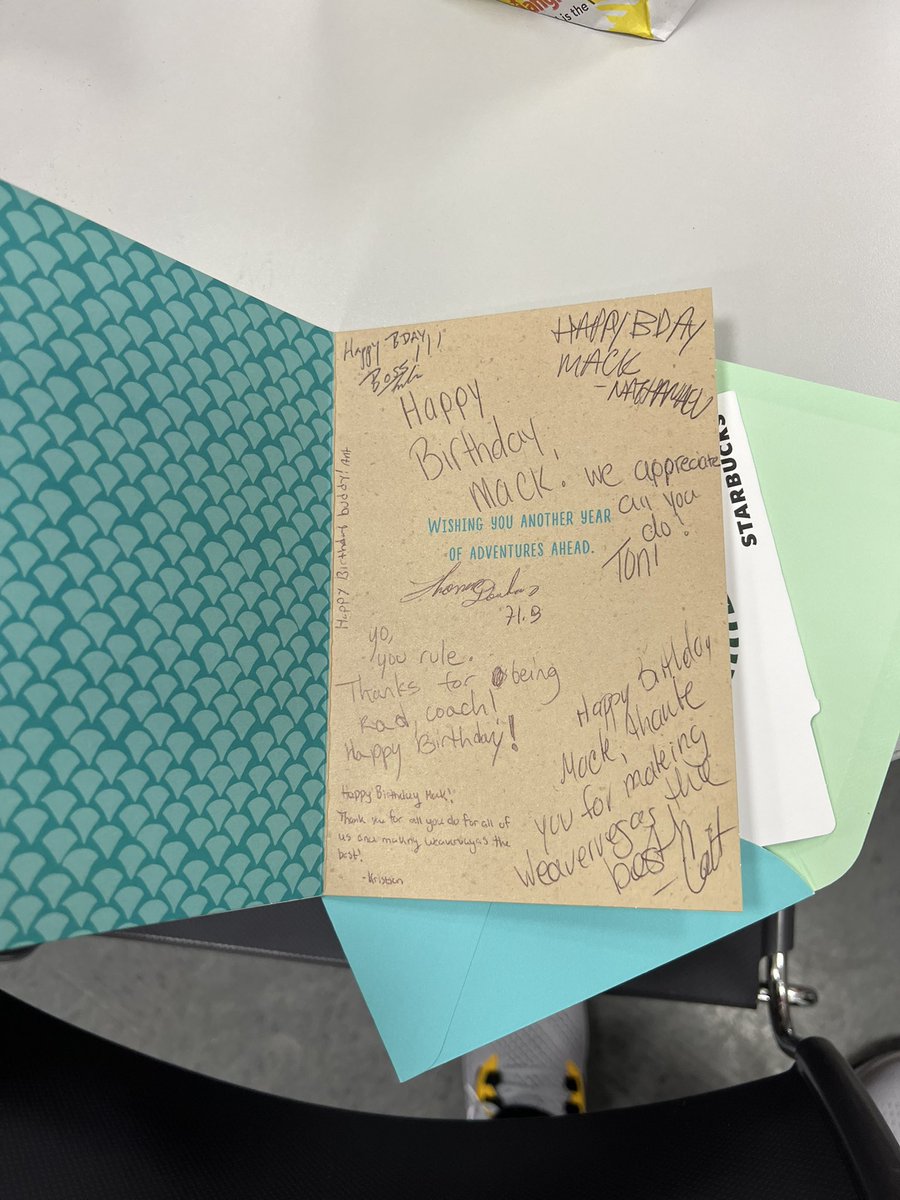 is the
Happy BDAY!!!
Boss
HAPPY BDAY
MACK
-NATHANAEL
Happy
Birthday,
Mack. We appreciate
all you
do!
Toni
Happy Birthday buddy! Ant
WISHING YOU ANOTHER YEAR
OF ADVENTURES AHEAD.
71.3
STARBUCKS
yo,
you rule.
Thanks for being
Rad, coach!
Happy Birthday!
Happy Birthday
Mack, thank
you for making
weavervegas the
best!
Happy Birthday Mack!
Thank you for all you do for all of
us and making weavervegas the
best!
-Kristian